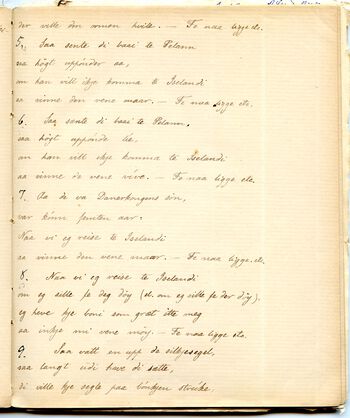 der ville den
5. Saa sente di baai te Polann
saa högt uppönder aa,
um han vill ikje komma te Iselandi
aa vinne den vene maar. — Fe naa ligge etc.
6. Saa sente di baai te Polann,
saa högt uppönde lie,
um han vill ikje komma te Iselandi
aa vinne de vene vive. — Fe naa ligge etc.
7. Aa de va Danerkongens son,
var könn femten aar:
Naa vi eg reise te Iselandi
aa vinne den vene maar. — Fe naa ligge etc.
8. Naa vi eg reise te Iselandi
om eg sille fe deg döy (el. om eg sille fe der döy),
eg heve kje boni som græt ette meg
aa inkje mi vene möy. — Fe naa ligge etc.
9. Saa vatt en upp de silkjesegel,
saa langt udi have di satte,
di ville kje segle paa strikke,